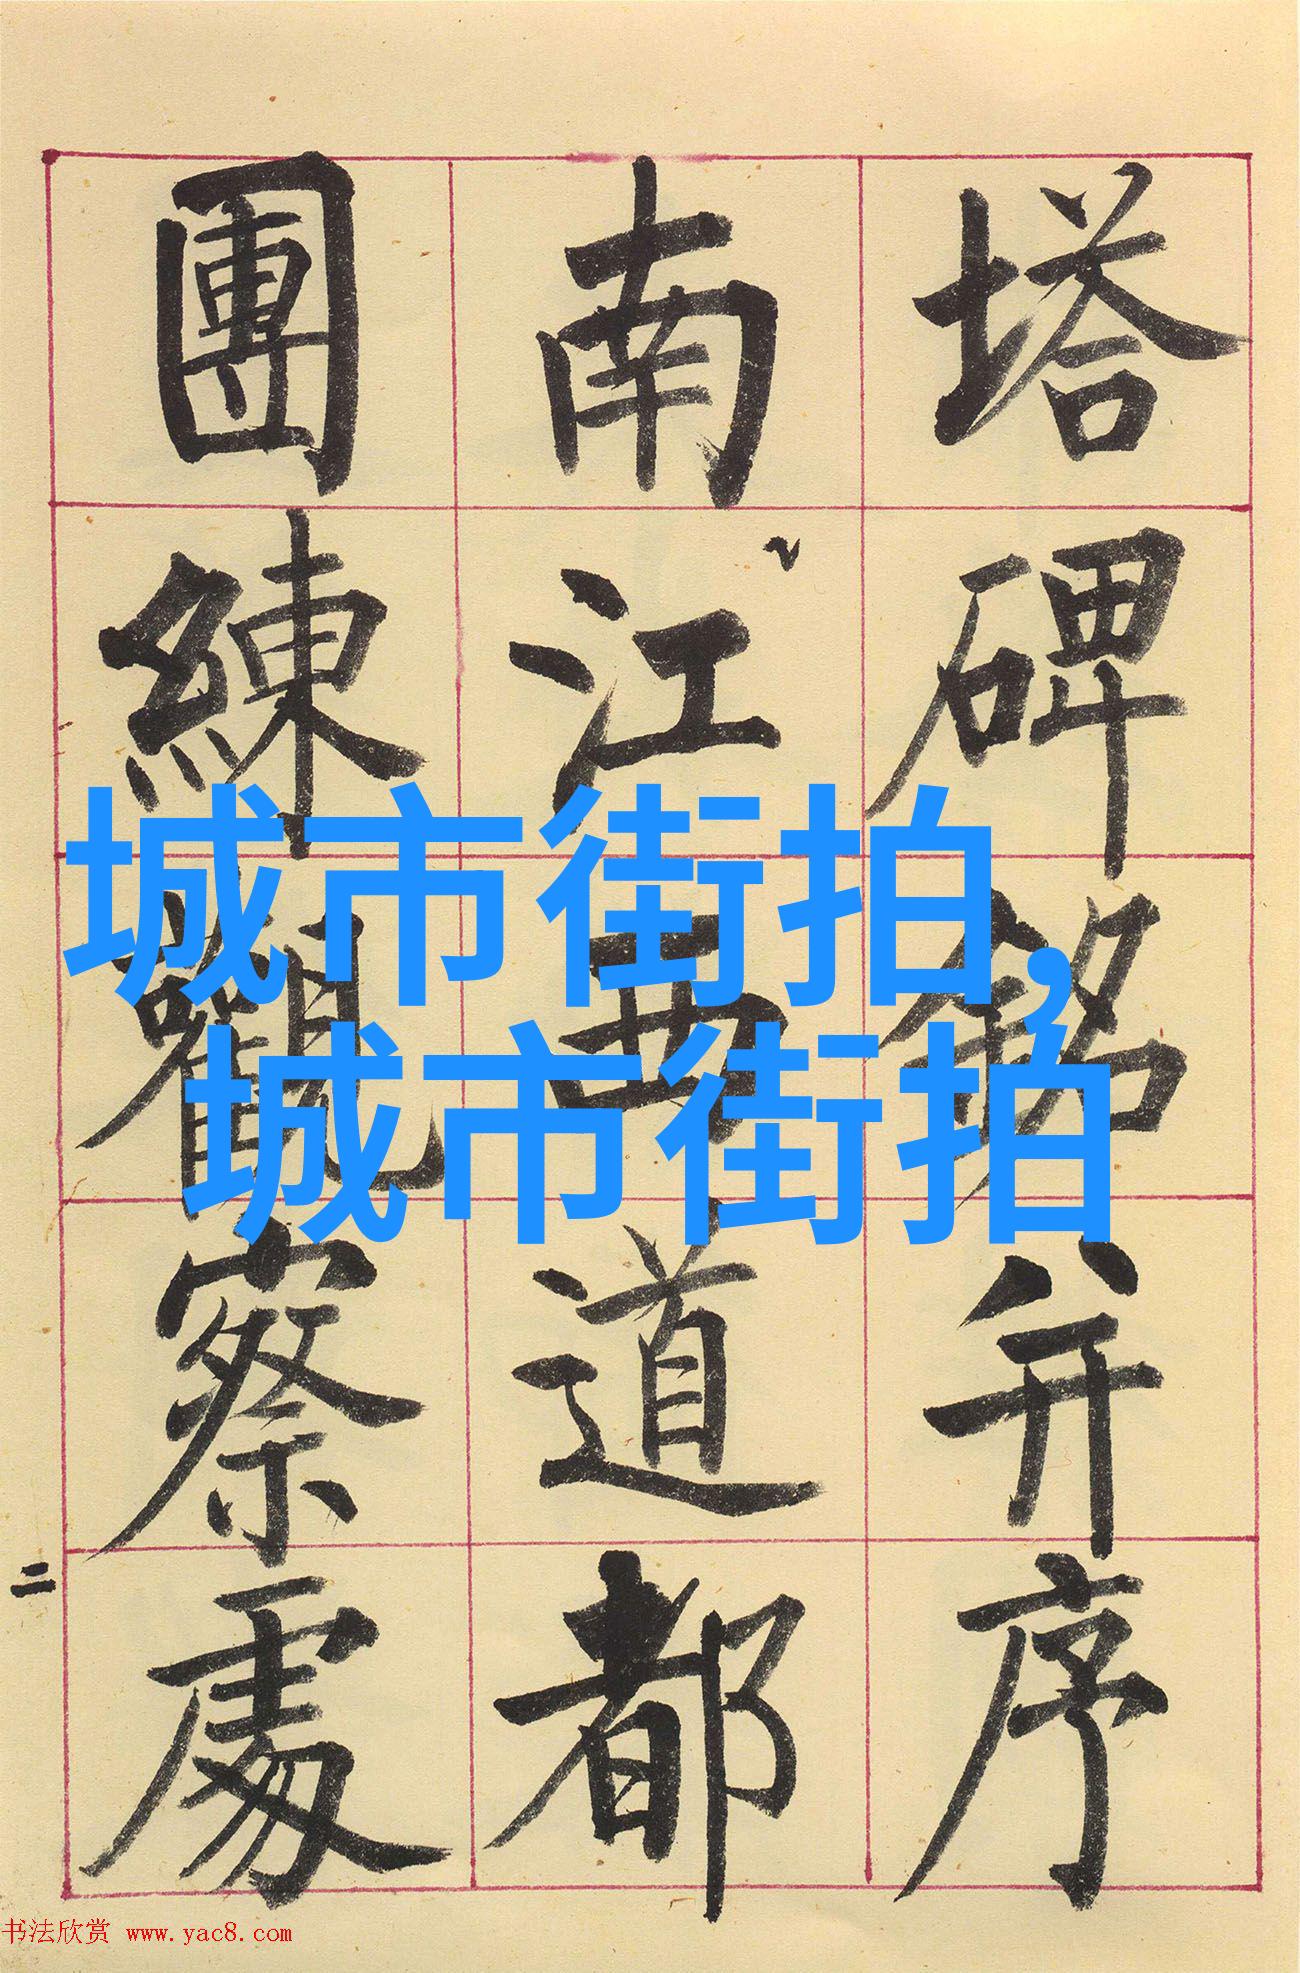 塔碑銘并序
南江西道都
團練觀察處
二
城市街拍,
城市街拍
书法欣赏 www.yac8.com